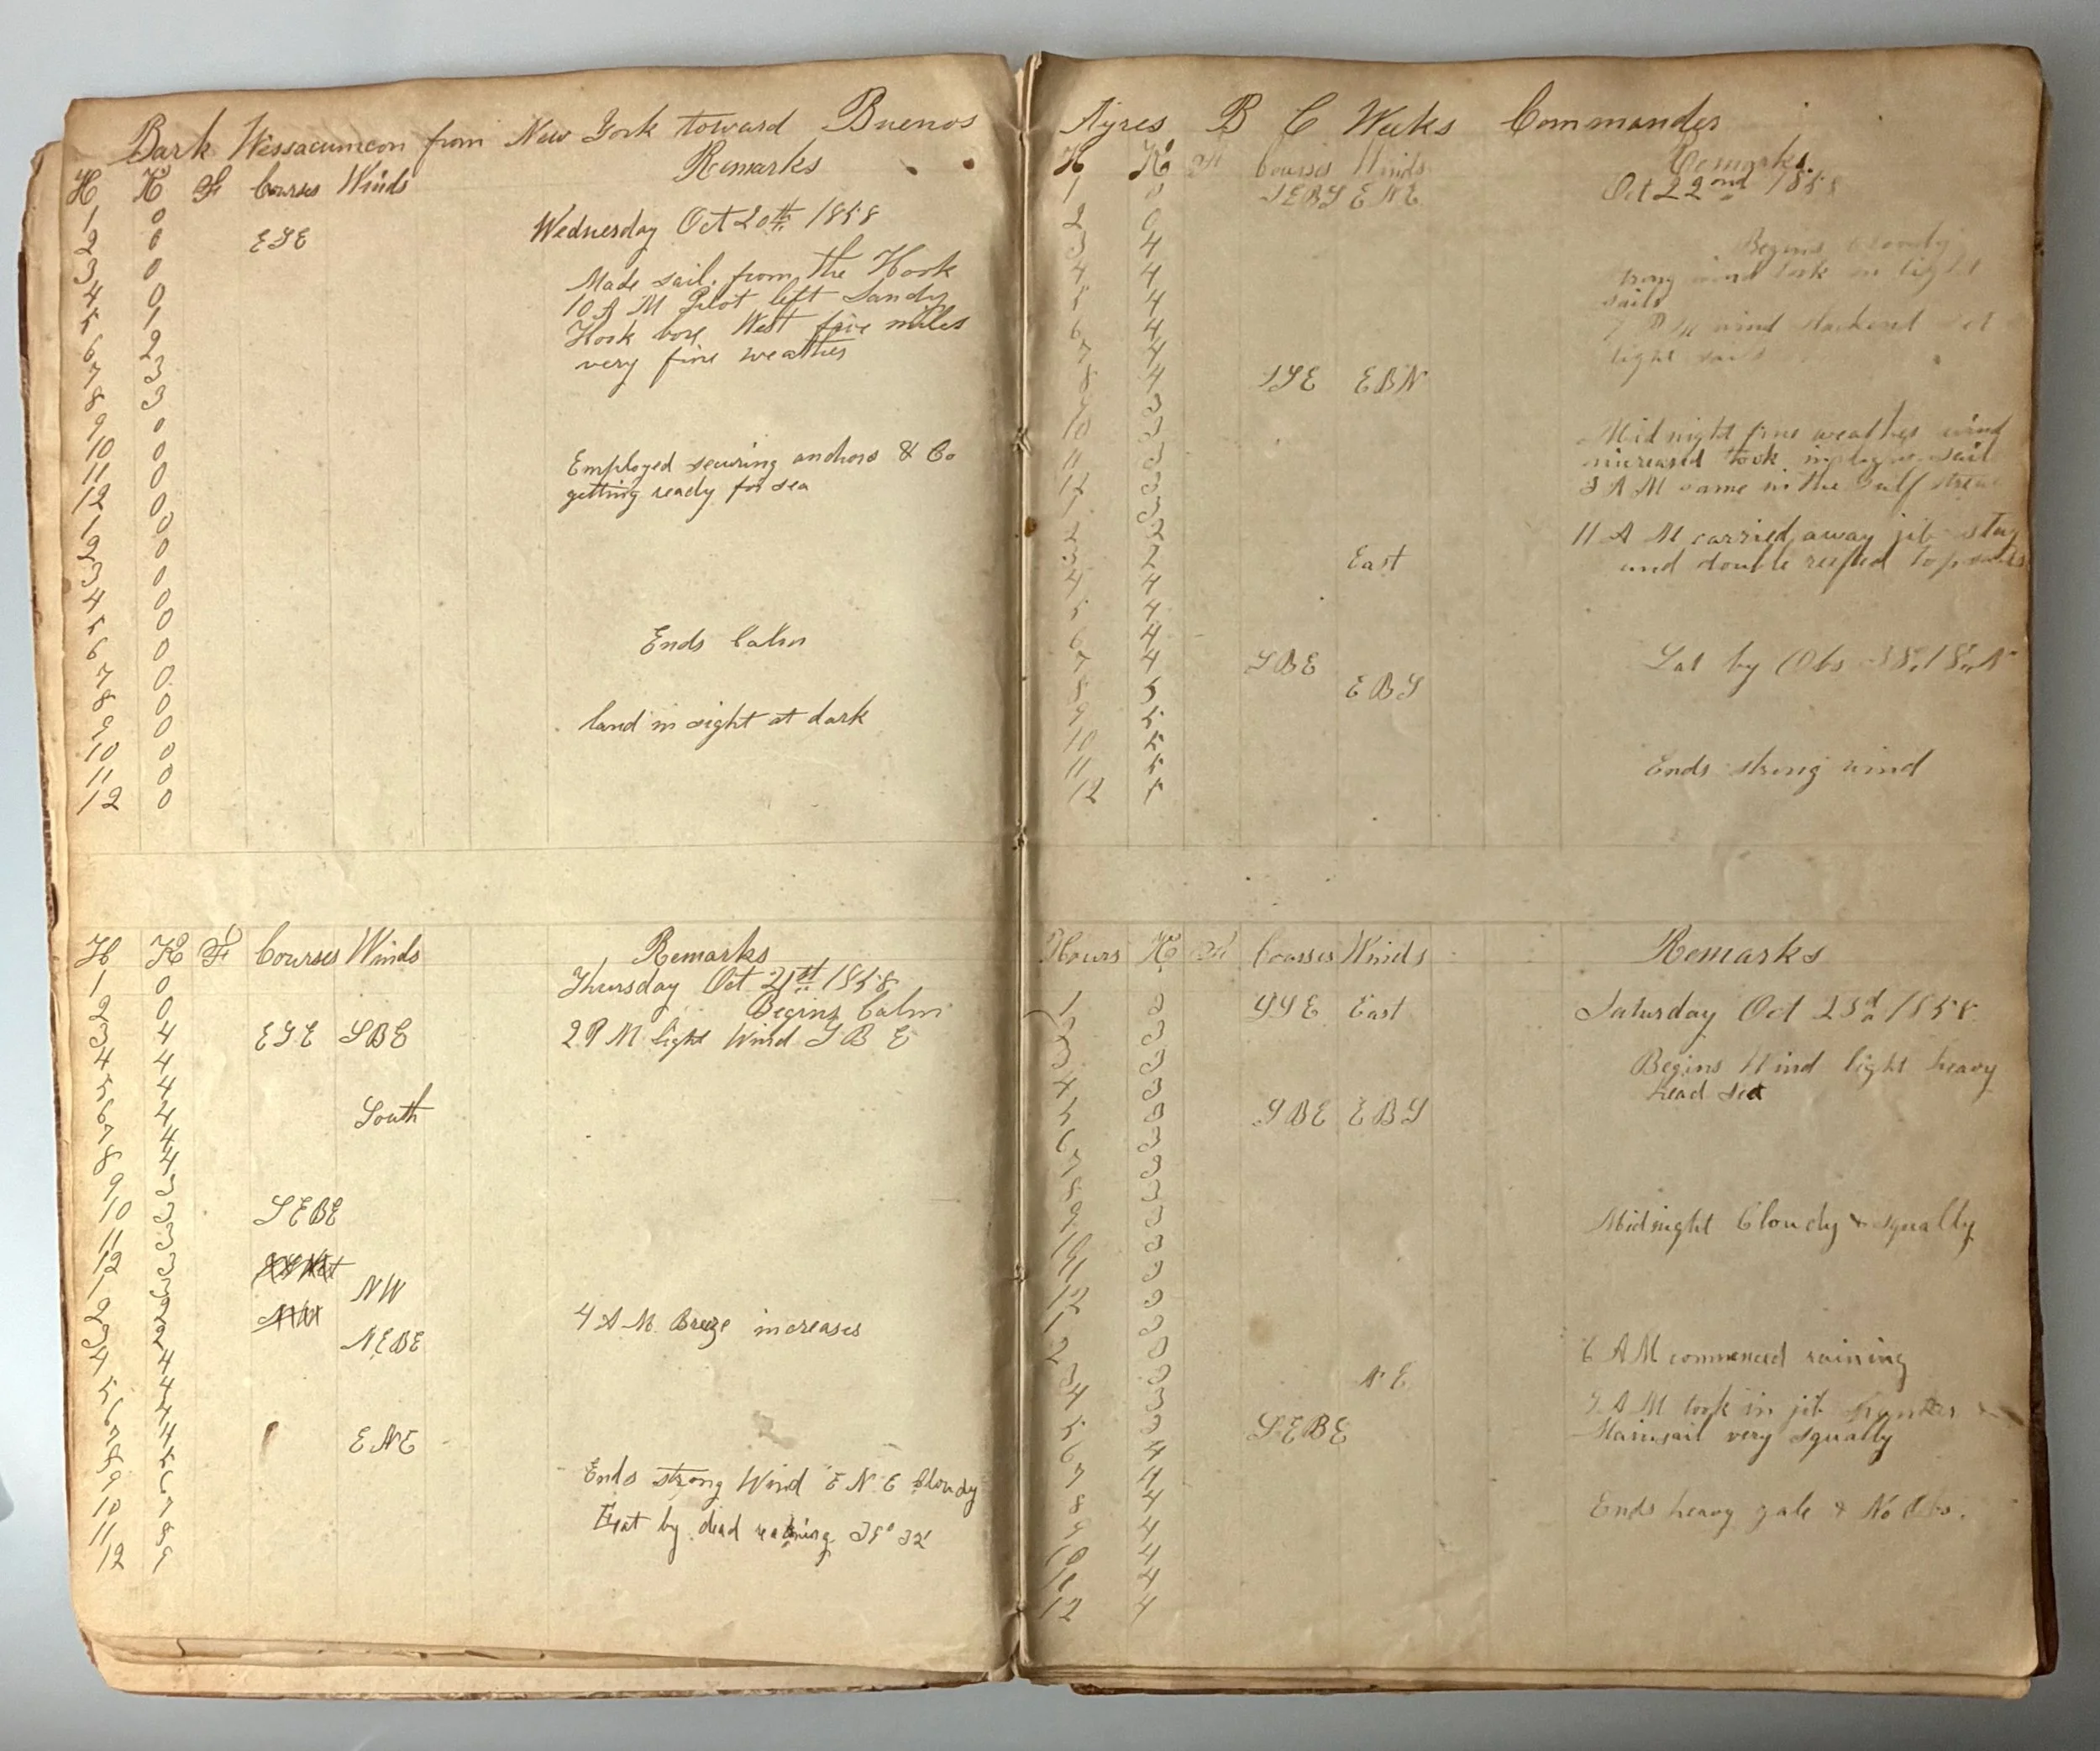 Bark Wissacumcon from New York toward Buenos
H K F Courses Winds Remarks
1 0
Wednesday Oct 20th 1858
2 0 ESE
3 0
Made sail from the Hook
4 0
10 A M Pilot left Sandy
5 1
Hook bore West five miles
6 2
very fine weather
7 3
8 3
9 0
10 0
Employed securing anchors & Co
11 0
getting ready for sea
12 0
1 0
2 0
3 0
4 0
5 0
Ends Calm
6 0
7 0
8 0
land in sight at dark
9 0
10 0
11 0
12 0
H K F Courses Winds Remarks
1 0
Thursday Oct 21st 1858
2 0
Begins Calm
3 4 ESE SBE
2 P M light Wind S B E
4 4
5 4
6 4 South
7 4
8 4
9 3
10 3 SEBE
11 3
12 3
1 3 NW
2 2
4 A M Breeze increases
3 2 NEBE
4 4
5 4
6 4
7 4 ENE
8 5
9 6
Ends strong Wind E N E Cloudy
10 7
Lat by dead
11 8
12 9
Ayres B C Weeks Commander
H K F Courses Winds Remarks
1 0 SEBS ENE
Oct 22nd 1858
2 0
3 4
Begins Cloudy
4 4
strong wind took in light
5 4
sails
6 4
7 P M wind slackened set
7 4
light sails
8 4 SSE EBN
9 3
10 3
Midnight fine weather wind
11 3
increased took in sail
12 3
3 A M came in the Gulf stream
1 3
2 2
11 A M carried away jib stay
3 2 East
and double reefed topsails
4 4
5 4
6 4
7 4 SBE
Lat by Obs N
8 5 EBS
9 5
10 5
11 5
Ends strong wind
12 5
Hours K F Courses Winds Remarks
1 2 SSE East
Saturday Oct 23d 1858
2 3
3 3
Begins Wind light heavy
4 3
head sea
5 3 SBE EBS
6 3
7 3
8 3
9 3
Midnight Cloudy & squally
10 3
11 3
12 3
1 3
2 3
6 A M commenced raining
3 3 N E
4 3
A M took in jib spanker &
5 3 SEBE
Mainsail very squally
6 4
7 4
8 4
Ends heavy gale & No Obs.
9 4
10 4
11 4
12 4